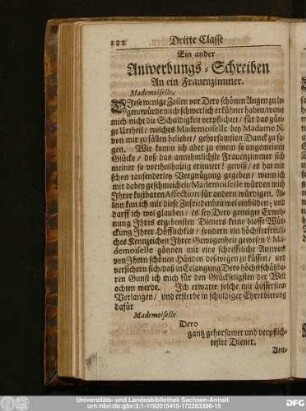 122 Dritte Classe
Ein ander
Anwerbungs-Schreiben
An ein Frauenzimmer.
Mademoiselle,
Diese wenige Zeilen vor Dero schönen Augen zu le-
gen/ würde mich schwerlich erkühnet haben/ wenn
mich nicht die Schuldigkeit verpflichtet/ für das gün-
ge Urtheil/ welches Mademoiselle bey Madame N
von mir zu fällen beliebet/ gehorsamsten Danck zu sa-
gen. Wie komm ich aber zu einem so ungemeinen
Glücke/ daß das annehmlichste Frauenzimmer sich
meiner so vortheilhafftig erinnert? gewiß/ es hat mir
schon tausenderley Vergnügung gegeben/ wenn ich
mir dabey geschmeichelt Mademoiselle würden mich
Ihrer kostbaren Affection für andern würdigen. Al-
lein kan ich mir diese Zufriedenheit wol einbilden; und
darff ich wol glauben/ es sey Dero geneigte Erweh-
nung Ihres ergebensten Dieners keine blosse Wür-
ckung Ihrer Höfflichkeit/ sondern ein höchsterfreuli-
ches Kennzeichen Ihrer Gewogenheit gewesen? Ma-
demoiselle gönnen mir eine schrifftliche Antwort
von Ihren schönen Händen deswegen zu küssen/ und
versichern sich/ daß in Erlangung Dero höchstschätzba-
ren Gunst ich mich für den Glückseligsten der Welt
achten werde. Ich erwarte solche mit äusserstem
Verlangen/ und ersterbe in schuldiger Ehrerbietung
dafür
Mademoiselle
Dero
gantz gehorsamer und verpflich-
tester Diener.
Ant-
Universitäts- und Landesbibliothek Sachsen-Anhalt
urn:nbn:de:gbv:3:1-1192015415-172283396-15
DFG